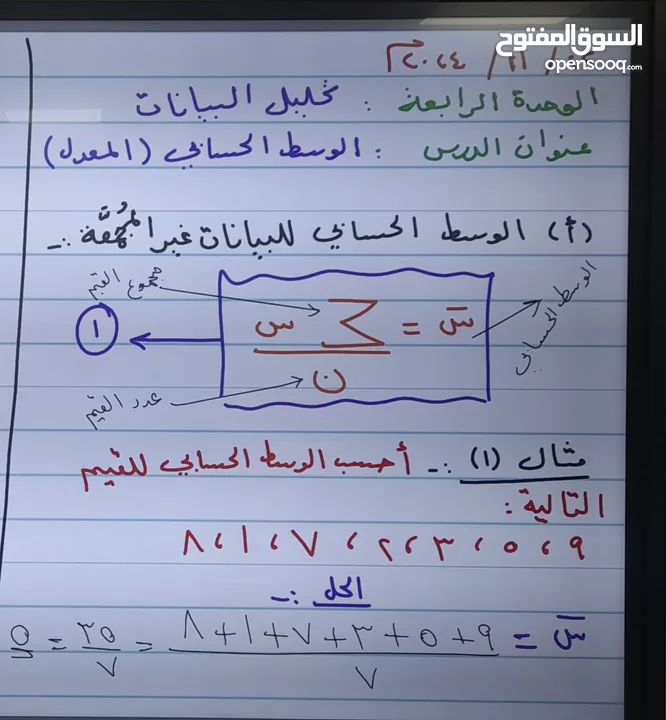 السوق المفتوح
opensooq.com
/ ١١ / ٢٠٢٤م
الوحدة الرابعة : تحليل البيانات
عنوان الدرس : الوسط الحسابي (المعدل)
(أ) الوسط الحسابي للبيانات غير المجمّعة :-
مجموع القيم
الوسط الحسابي
س̄ = ∑ س / ن
١
عدد القيم
مثال (١) :- أحسب الوسط الحسابي للقيم
التالية :
٩ ، ٥ ، ٣ ، ٢ ، ٧ ، ١ ، ٨
الحل :-
س̄ = ٩+٥+٣+٧+١+٨ / ٧ = ٣٥ / ٧ = ٥